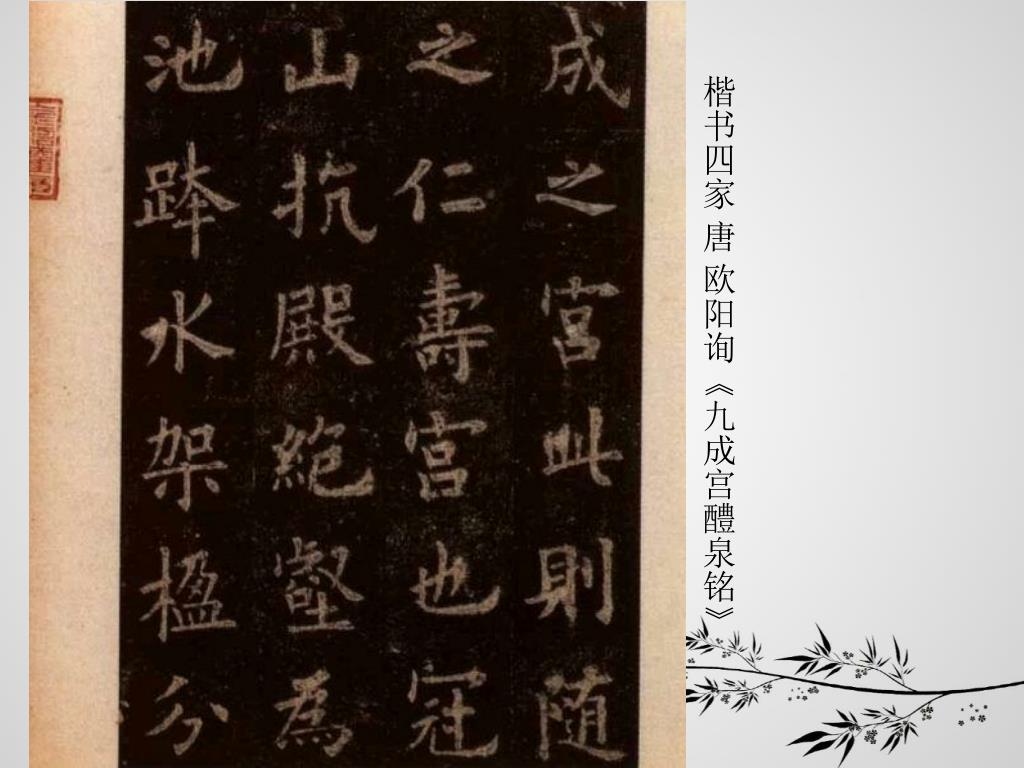 楷书四家 唐 欧阳询《九成宫醴泉铭》
成之宫此则随
之仁壽宫也冠
山抗殿絶壑為
池跨水架楹分